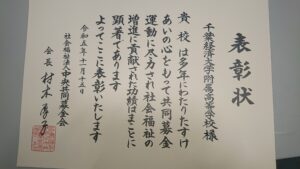 表彰状
千葉経済大学附属高等学校様
貴校は多年にわたりたすけ
あいの心をもって共同募金
運動に尽力され社会福祉の
増進に貢献された功績はまことに
顕著であります
よってここに表彰いたします
令和五年十一月十五日
社会福祉法人中央共同募金会
会長 村木厚子